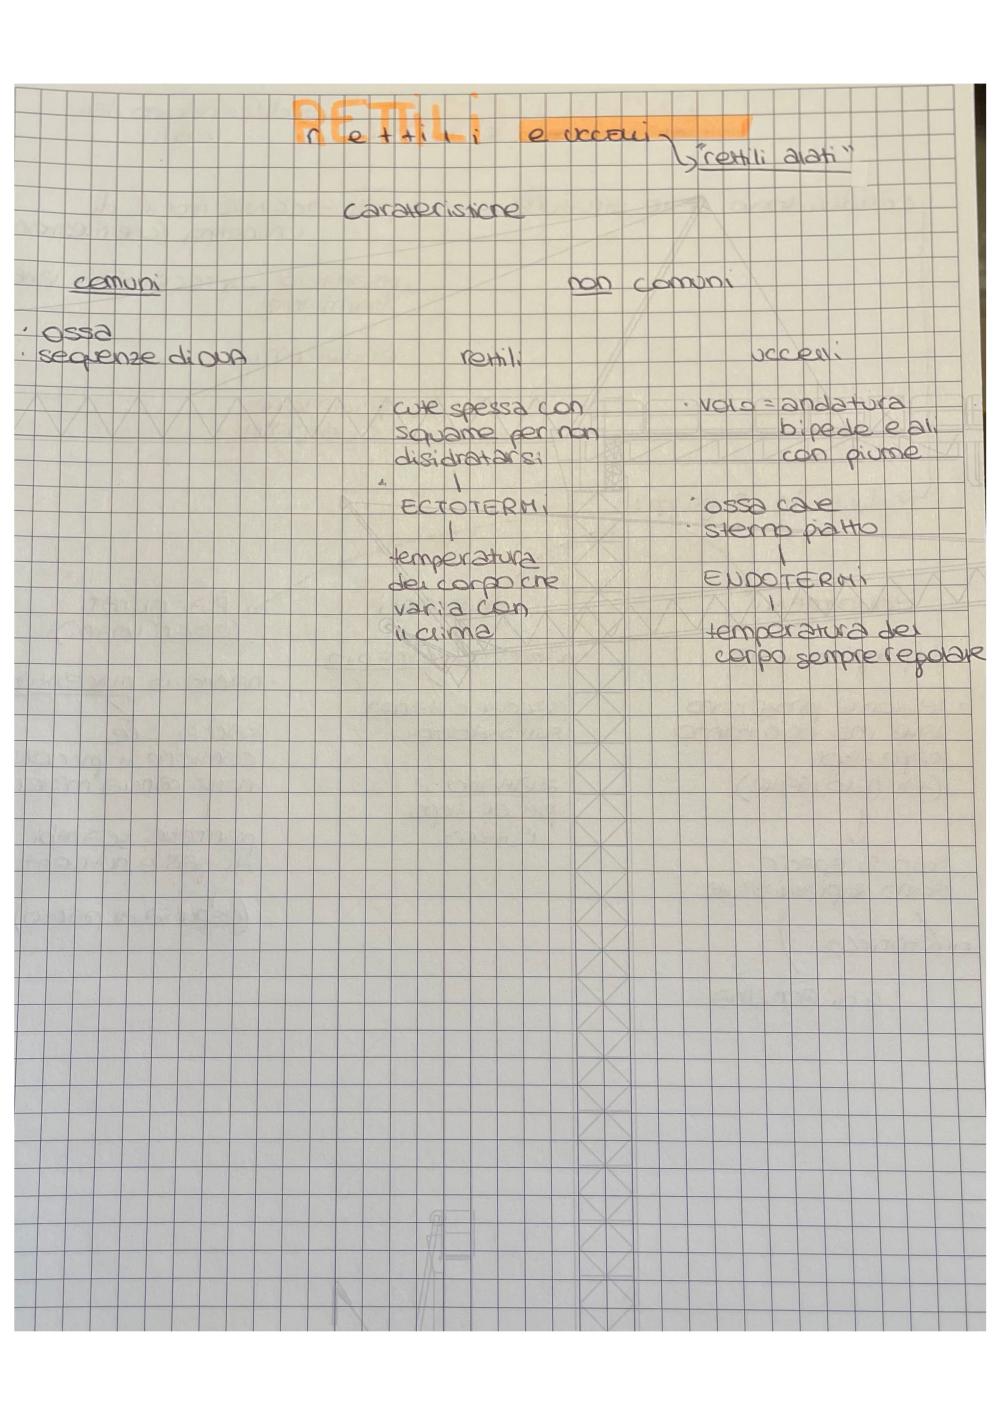 RETTILI
rettili e uccelli
"rettili alati"
caratteristiche
comuni
non comuni
· ossa
· sequenze di DNA
rettili
uccelli
· cute spessa con
squame per non
disidratarsi
ECTOTERMI
temperatura
del corpo che
varia con
il clima
· volo = andatura
bipede e ali
con piume
· ossa cave
· sterno piatto
ENDOTERMI
temperatura del
corpo sempre regolare